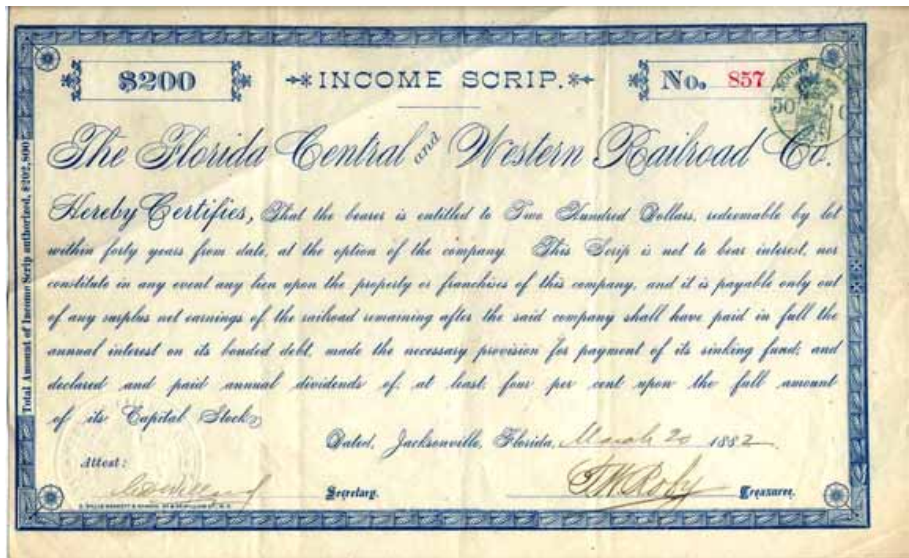 $200
INCOME SCRIP.
No. 857
The Florida Central and Western Railroad Co.
Hereby Certifies, That the bearer is entitled to Two Hundred Dollars, redeemable by lot
within forty years from date, at the option of the company. This Scrip is not to bear interest, nor
constitute in any event any lien upon the property or franchises of this company, and it is payable only out
of any surplus net earnings of the railroad remaining after the said company shall have paid in full the
annual interest on its bonded debt, made the necessary provision for payment of its sinking fund; and
declared and paid annual dividends of, at least, four per cent upon the full amount
of its Capital Stock
Dated, Jacksonville, Florida, March 20 1882
Attest:
Secretary.
Treasurer.
Total Amount of Income Scrip authorized,